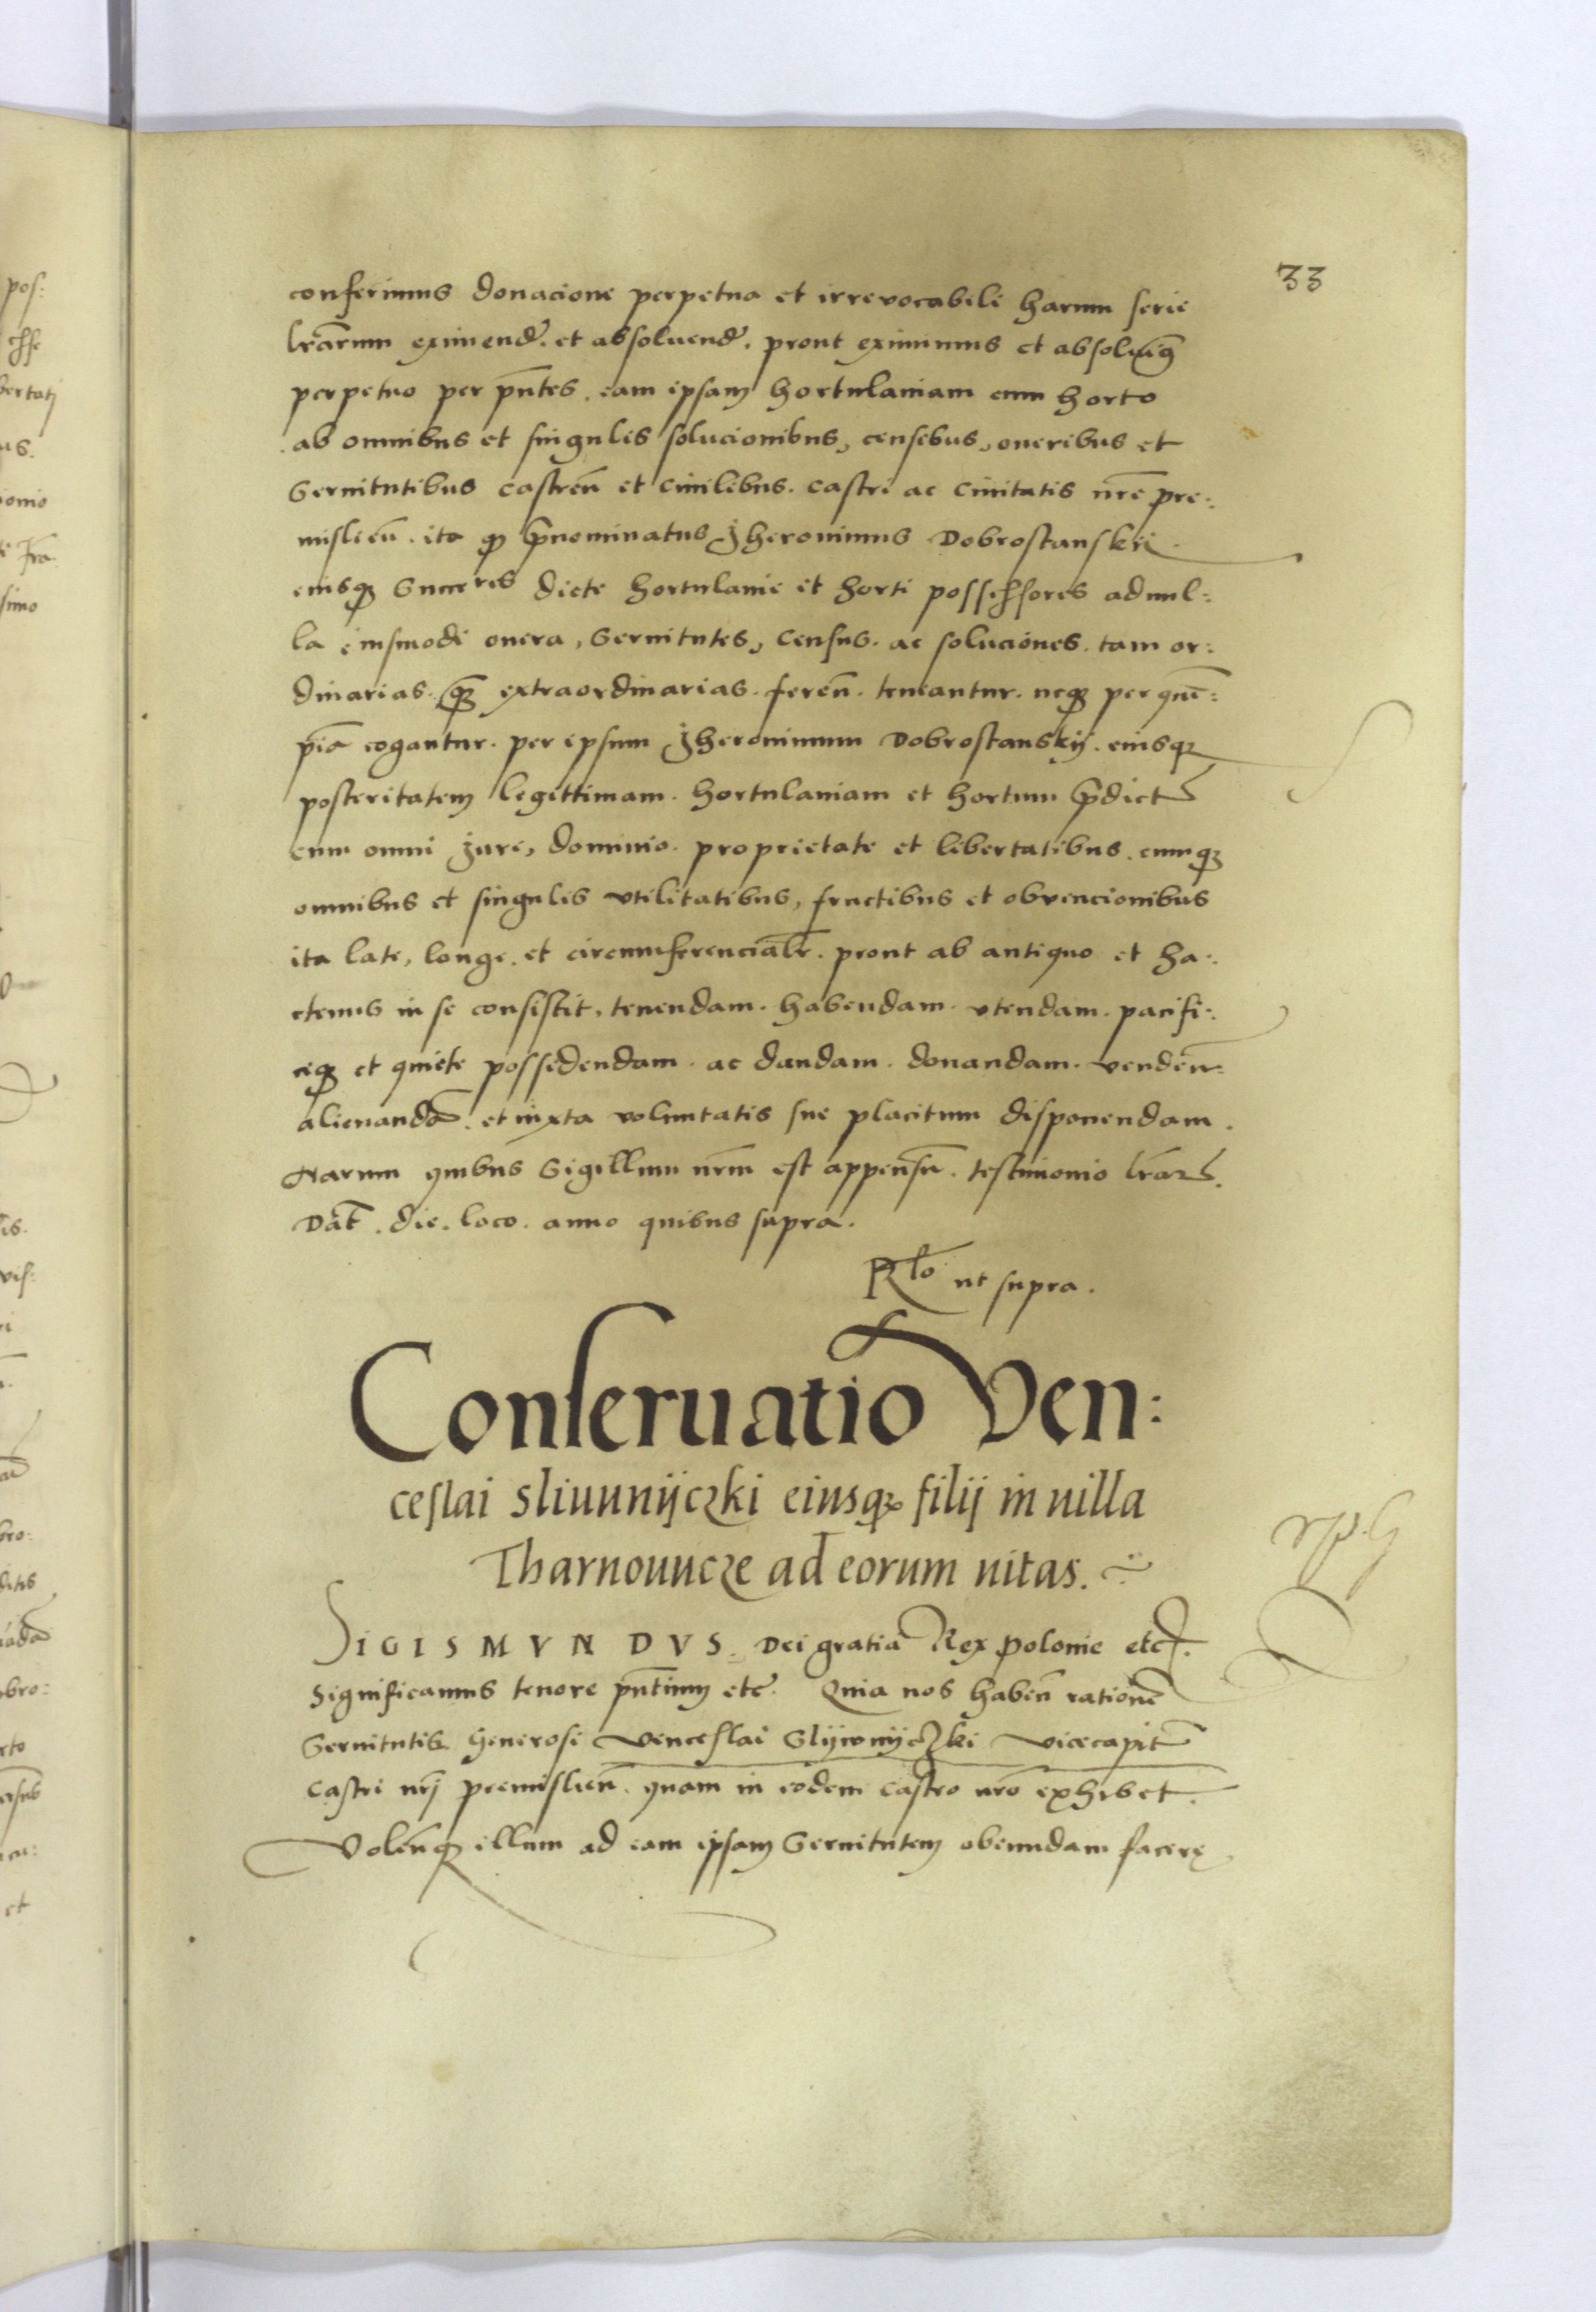 33
conferimus donacione perpetua et irrevocabili harum serie
lrarum eximend. et absoluend. prout eximimus et absoluimg
perpetuo per pntes. eam ipsam hortulaniam cum horto
ab omnibus et singulis solucionibus, censibus, oneribus et
Seruitutibus castren et ciuilibus. castri ac Ciuitatis nre pre:
mislien. ita qz prenominatus Jheronimus Dobrostanskii
eiusqz Succres dicte hortulanie et horti possessores ad nul:
la eiusmodi onera, Seruitutes, Census. ac soluciones. tam or:
dinarias. qz extraordinarias. feren. teneantur. neqz per quē:
pia cogantur. per ipsum Jheronimum Dobrostanskij. eiusqz
posteritatem legittimam. hortulaniam et hortum predict
cum omni Jure, dominio. proprietate et libertatibus. cumqz
omnibus et singulis vtilitatibus, fructibus et obvencionibus
ita late, longe. et circumferencialr. prout ab antiquo et ha:
ctenus in se consistit, tenendam. habendam. vtendam. pacifi:
ceqz et quiete possidendam. ac dandam. donandam. venden:
alienandā. et iuxta voluntatis sue placitum disponendam.
Harum quibus Sigillum nrm est appensū. testimonio lrarz.
Dat. die. loco. anno quibus supra.
Rlo ut supra.
Conseruatio Ven:
ceslai Sliuunijczki eiusqz filij in uilla
Tharnouucze ad eorum uitas.
SIGISMVNDVS. Dei gratia Rex Polonie etc.
Significamus tenore pntium etc. Quia nos haben rationē
Seruitutis Generosi Venceslai Slijwnijczki vicecapit
Castri nrj premislien. quam in eodem castro nro exhibet.
Volenqz illum ad eam ipsam Seruitutem obeundam facere